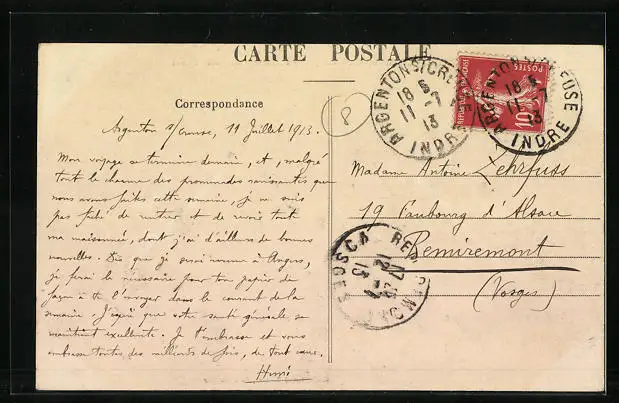 CARTE POSTALE
Correspondance
Argenton s/Creuse, 11 Juillet 1913.
Mon voyage se termine demain, et, malgré
tout le charme des promenades ravissantes que
nous avons faites cette semaine, je ne suis
pas fâché de rentrer et de revoir toute
ma maisonnée, dont j'ai d'ailleurs de bonnes
nouvelles. Dès que je serai revenu à Angers,
je ferai le nécessaire pour ton papier de
façon à te l'envoyer dans le courant de la
semaine. J'espère que votre santé générale se
maintient excellente. Je t'embrasse et vous
embrasse toutes des milliers de fois, de tout cœur.
8
ARGENTON S/CREUSE
18
11 - 7
13
INDRE
REPUBLIQUE FRANÇAISE
POSTES
10
ARGENTON S/CREUSE
18
11 7
13
INDRE
Madame Antoine Lehrfuss
19 Faubourg d'Alsace
Remiremont
(Vosges)
VOSGES
12 - 7
13